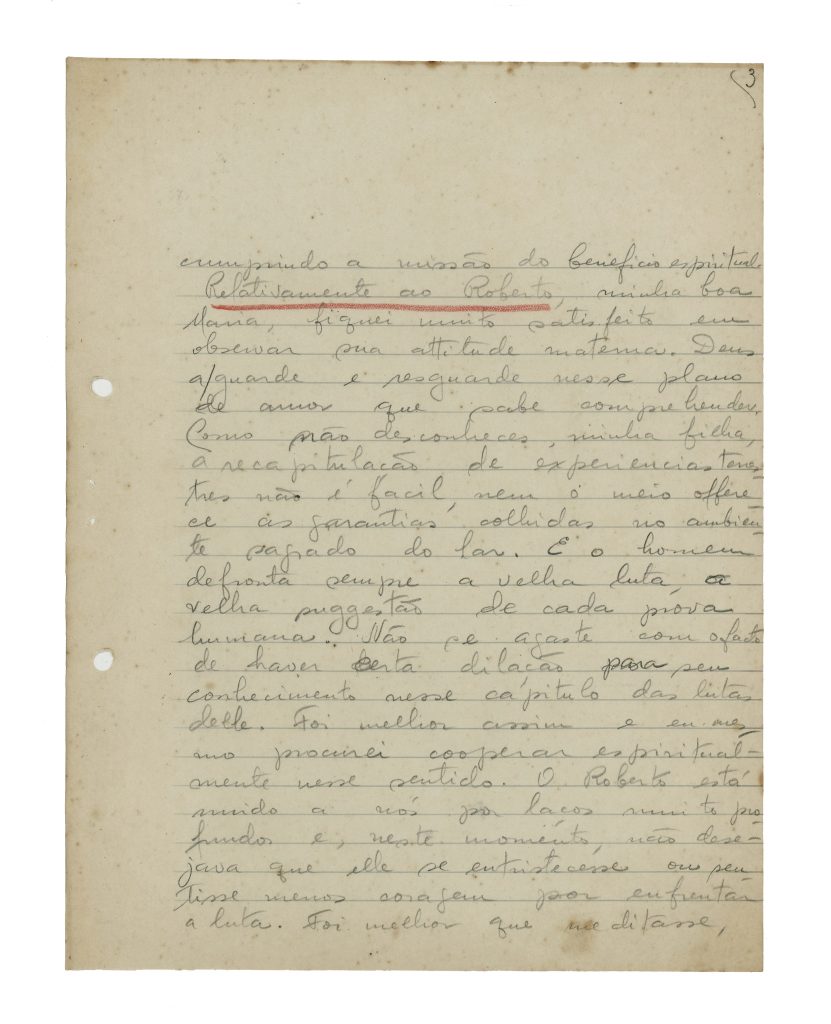 3
cumprindo a missão do beneficio espiritual.
Relativamente ao Roberto, minha boa
Maria, fiquei muito satisfeito em
observar sua attitude materna. Deus
a/guarde e resguarde nesse plano
de amor que sabe comprehender.
Como não desconheces, minha filha,
a recapitulação de experiencias terres-
tres não é facil, nem o meio offere-
ce as garantias colhidas no ambien-
te sagrado do lar. E o homem
defronta sempre a velha luta, a
velha suggestão de cada prova
humana. Não se agaste com o facto
de haver certa dilação para seu
conhecimento nesse capitulo das lutas
delle. Foi melhor assim e eu mes-
mo procurei cooperar espiritual-
mente nesse sentido. O Roberto está
unido a nós por laços muito pro-
fundos e, neste momento, não dese-
java que elle se entristecesse ou sen-
tisse menos coragem por enfrentar
a luta. Foi melhor que meditasse,